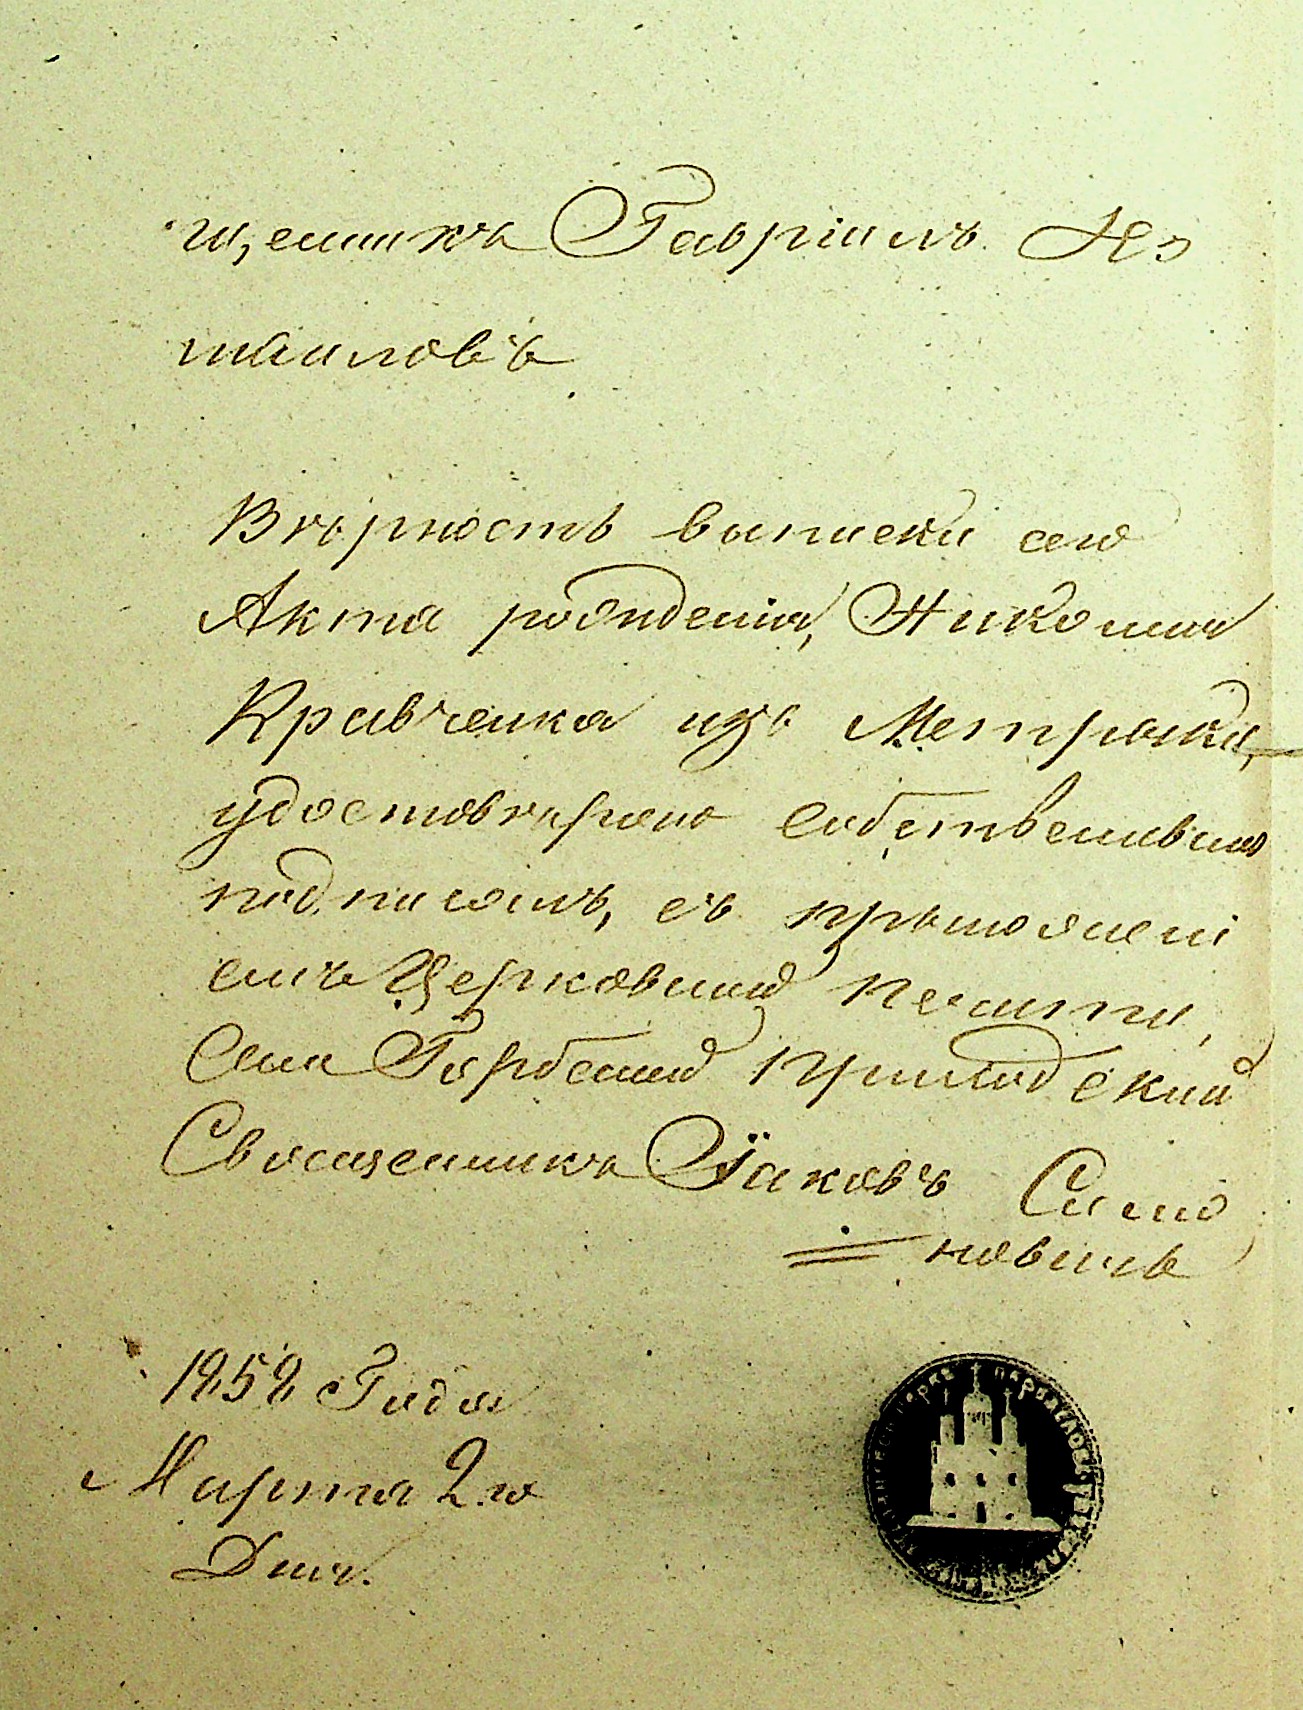 щенникъ Гавріилъ Из
маиловъ
Вѣрность выписки сего
Акта рожденія, Николая
Кравченка изъ Метрики,
удостовѣряю собственною
подписомъ, съ приложені
емъ Церковной печати,
Села Горбовой Приходскій
Священникъ Іаковъ Симо
новичь
1852 Года
Марта 2го
Дня.